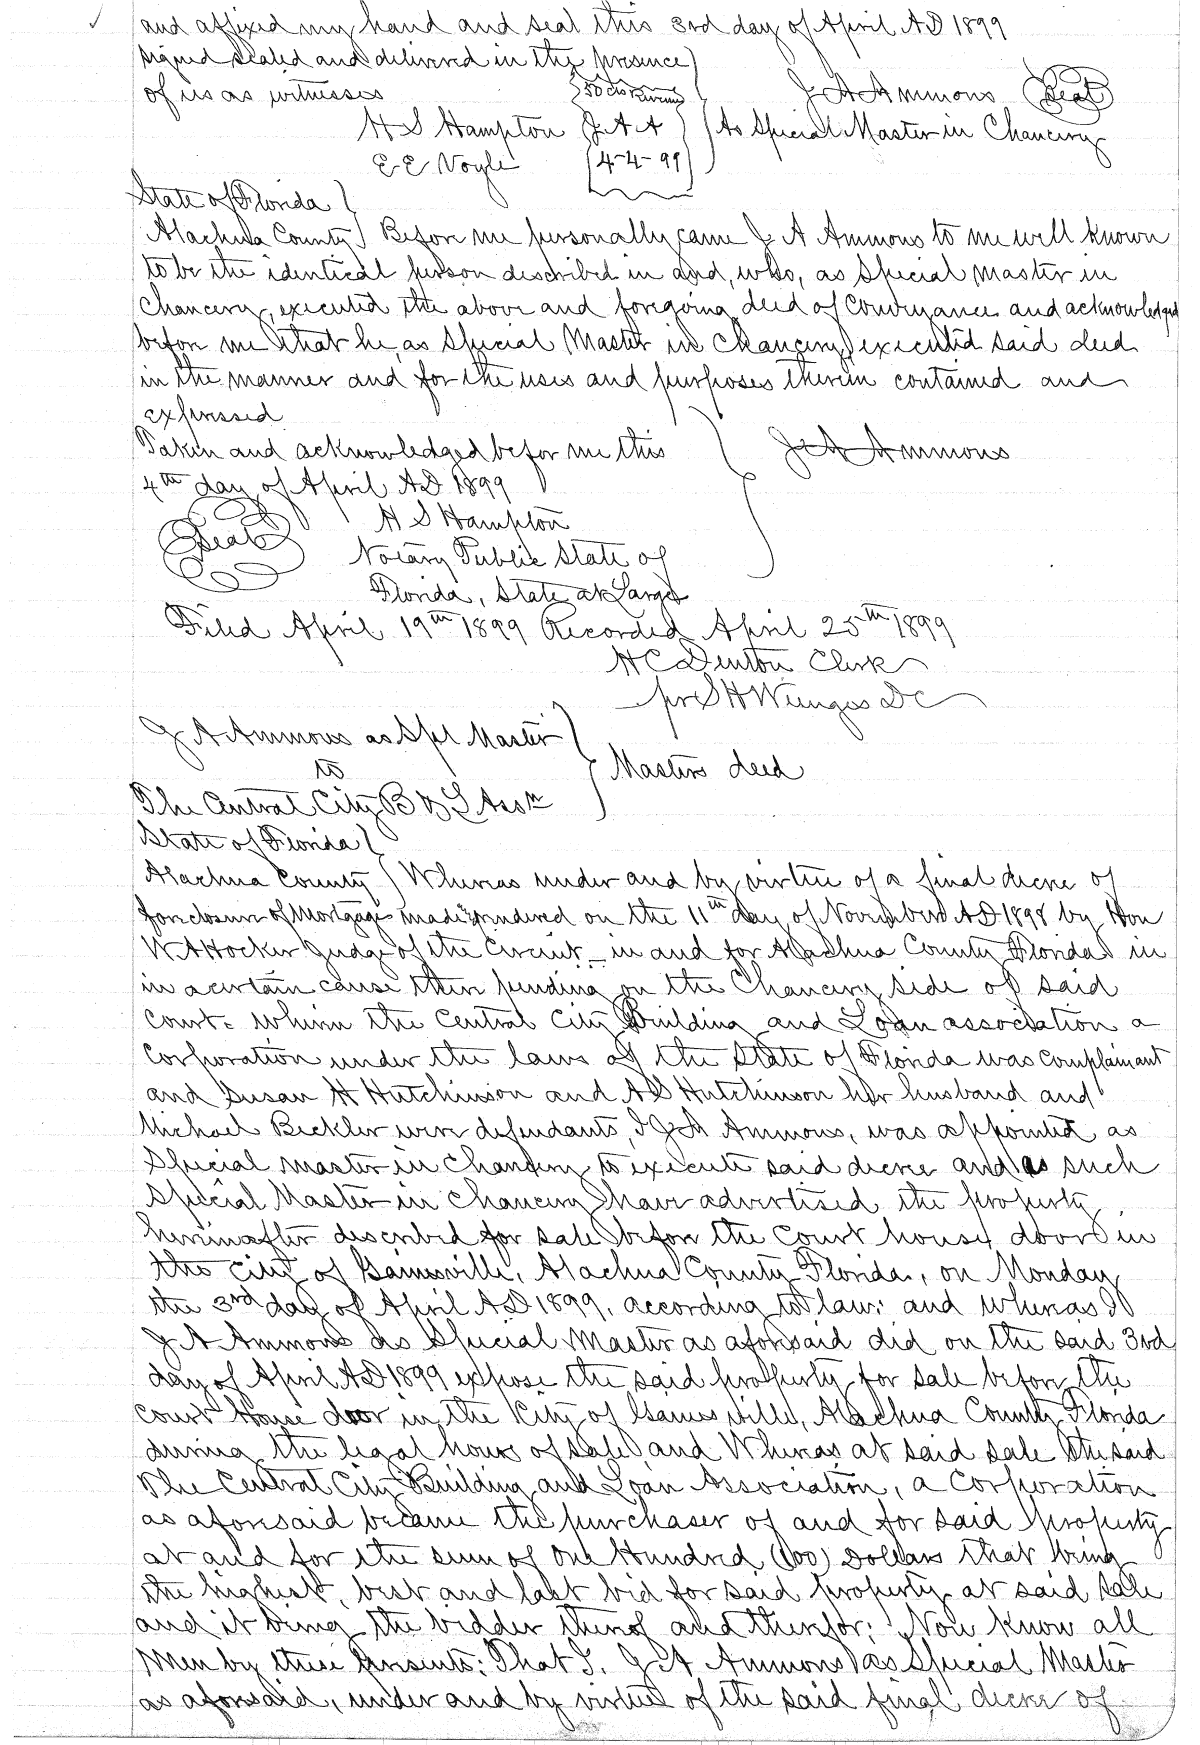 and affixed my hand and seal this 3rd day of April AD 1899
signed sealed and delivered in the presence
of us as witnesses 50 cts Revenue J A Ammons Seal
H S Hampton J.A.A As Special Master in Chancery
E E Voyle 4-4-99
State of Florida
Alachua County Before me personally came J A Ammons to me well known
to be the identical person described in and, who, as Special Master in
Chancery, executed the above and foregoing deed of Conveyance and acknowledged
before me that he, as Special Master in Chancery, executed said deed
in the manner and for the uses and purposes therein contained and
expressed
Taken and acknowledged before me this J A Ammons
4th day of April AD 1899
Seal H S Hampton
Notary Public State of
Florida, State at Large
Filed April 19th 1899 Recorded April 25th 1899
H C Denton Clerk
pr S H Wienges DC
J A Ammons as Spl Master
to Masters deed
The Central City B & L Assn
State of Florida
Alachua County Whereas under and by virtue of a final decree of
foreclosure of Mortgage made rendered on the 11th day of November AD 1898 by Hon
W A Hocker Judge of the Circuit in and for Alachua County Florida in
in a certain cause then pending on the Chancery side of said
Court. wherein the Central City Building and Loan association a
Corporation under the laws of the State of Florida was complainant
and Susan H Hutchinson and A S Hutchinson her husband and
Michael Beckler were defendants, I J A Ammons, was appointed as
Special master in Chancery to execute said decree and as such
Special Master in Chancery have advertised the property
hereinafter described for sale before the Court house door in
the city of Gainesville, Alachua County Florida, on Monday
the 3rd day of April AD 1899, according to law: and whereas I
J A Ammons as Special Master as aforesaid did on the said 3rd
day of April AD 1899 expose the said property for sale before the
Court House door in the City of Gainesville, Alachua County Florida
during the legal hours of sale and Whereas at said sale the said
The Central City Building and Loan Association, a Corporation
as aforesaid became the purchaser of and for said property
at and for the sum of One Hundred (100) Dollars that being
the highest, best and last bid for said property at said sale
and it being the bidder thereof and therefor: Now know all
Men by these Presents: That I. J A Ammons as Special Master
as aforesaid, under and by virtue of the said final decree of